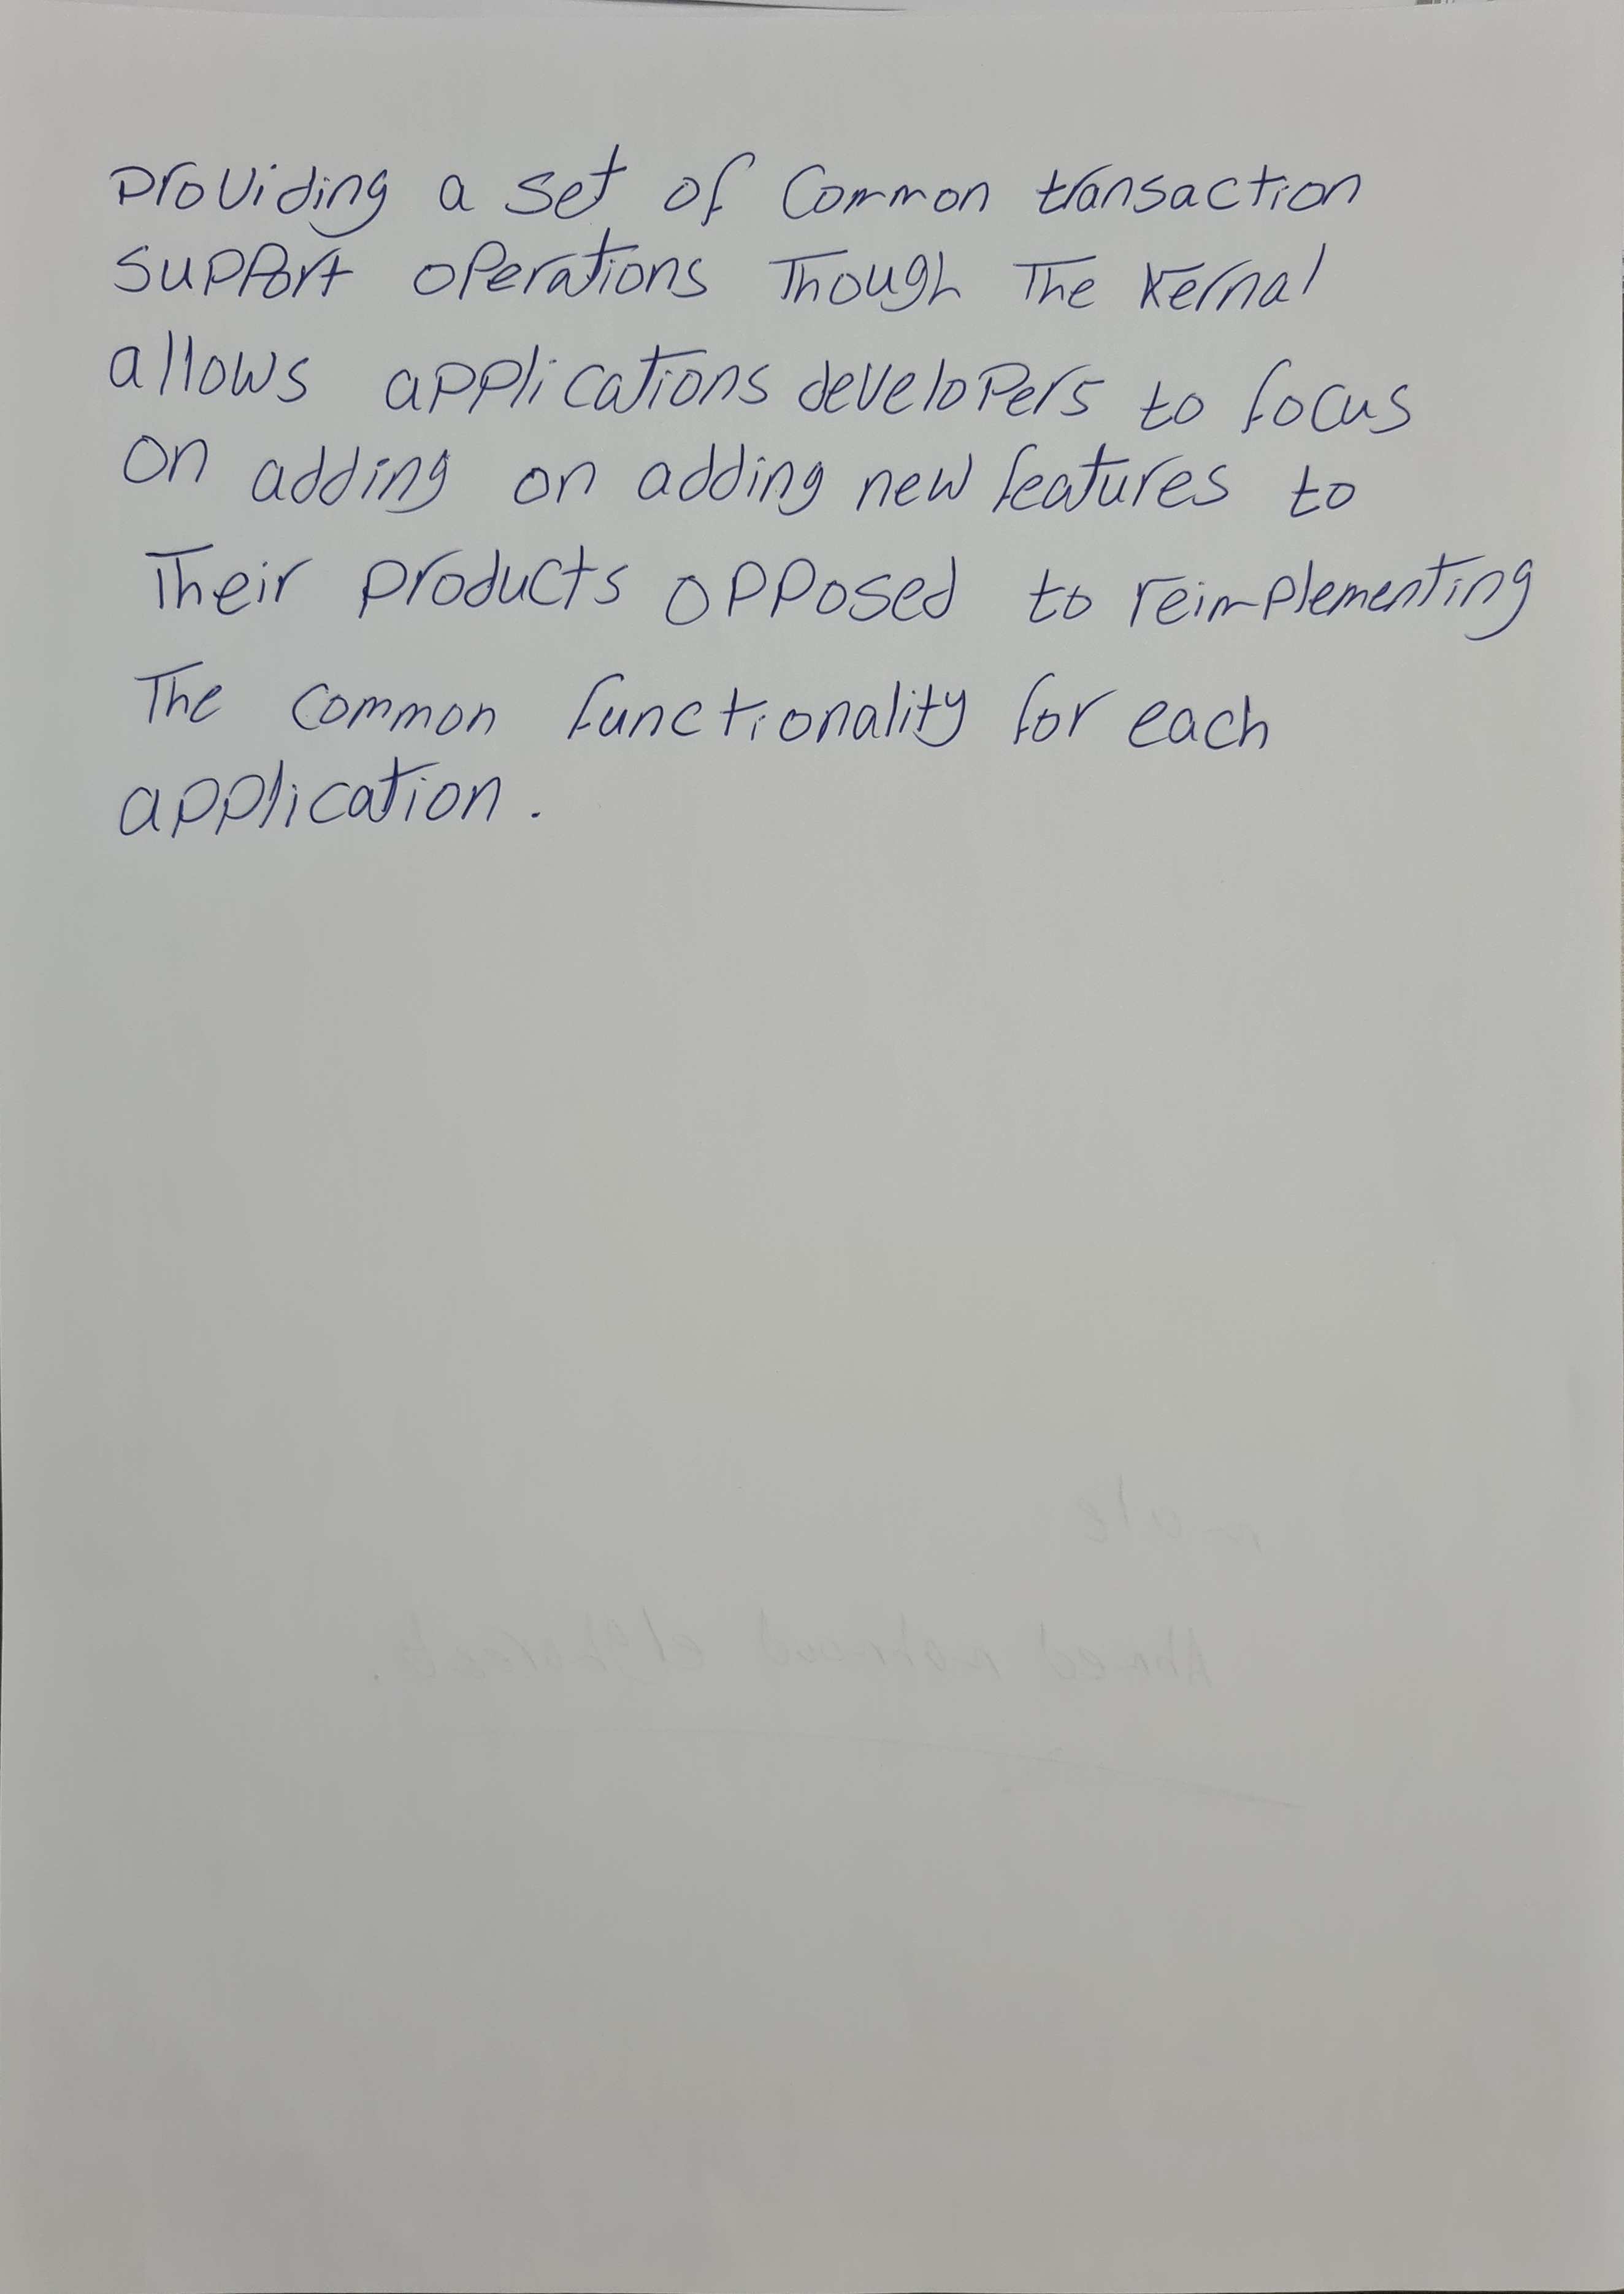 Providing a set of Common transaction
support operations Though The Kernal
allows applications developers to focus
on adding on adding new features to
Their products opposed to reimplementing
The common functionality for each
application.